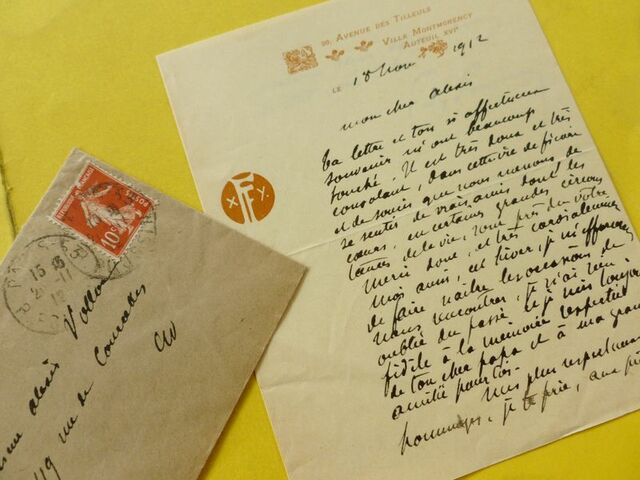 20, AVENUE DES TILLEULS
VILLA MONTMORENCY
AUTEUIL XVIᵉ
LE 18 Nov 1912
mon cher Alexis
Ta lettre et ton si affectueux
souvenir m'ont beaucoup
touché. Il est très doux et très
consolant, dans cette vie de
et de soucis que nous menons, de
se sentir de vrais amis dont les
cœurs, en certaines grandes circons
tances de la vie, sont près du vôtre
Merci donc, et très cordialement
Mon ami, cet hiver, je m'efforcerai
de faire naître les occasions de
nous rencontrer, je n'ai rien
oublié du passé et je suis toujours
fidèle à la mémoire respectée
de ton cher papa et à ma grande
amitié pour toi.
Mes plus respectueux
hommages, je te prie, à
X F Y
REPUBLIQUE FRANÇAISE
POSTES
10c
PARIS
15
20 - 11
12
Alexis Vollon
119 rue de Courcelles